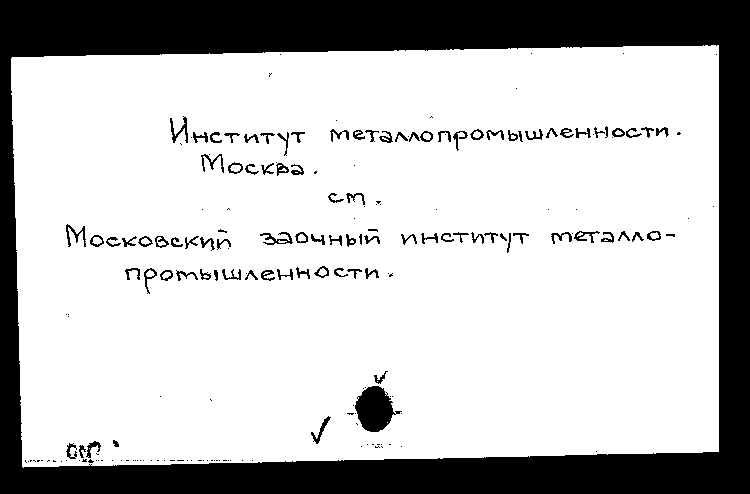 Институт металлопромышленности.
Москва.
см.
Московский заочный институт металло-
промышленности.